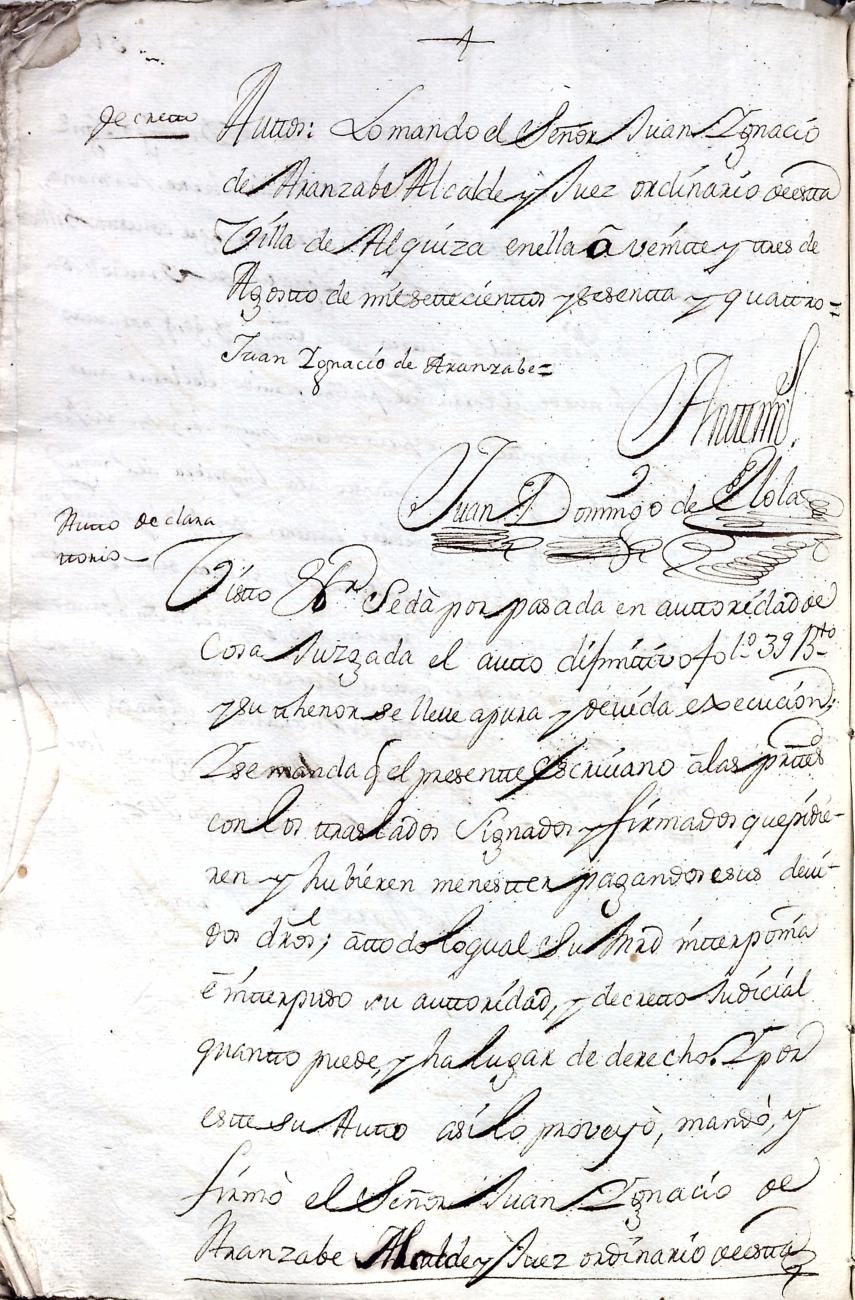 Decretto
Auttos: Lo mando el Señor Juan Ygnacio
de Aranzabe Alcalde y Juez ordinario deestta
Villa de Alquiza enella â veintte y ttres de
Agostto de mil settecienttos y sesentta y quattro=
Juan Ygnacio de Aranzabe=
Anttemi.
Juan Domingo de Elola
Autto declara
ttorio
Vistto &ª Seda por pasada en auttoridad de
Cosa Juzgada el autto difinittivo fol.º 39 B.to
y su thenor se lleve apura y devida execucion;
Y se manda q el presentte Escrivano â las prttes
con los ttraslados signados y firmados que pidie-
ren y hubieren menestter pagandoseus devi-
dos dros; âttodo loqual Su Mrd intterponia
ê intterpuso su auttoridad, y decretto Judicial
quantto puede, y ha lugar de derecho. Y por
estte su Autto asi lo proveyò, mandò, y
firmò el Señor Juan Ygnacio de
Aranzabe Alcalde y Juez ordinario deestta